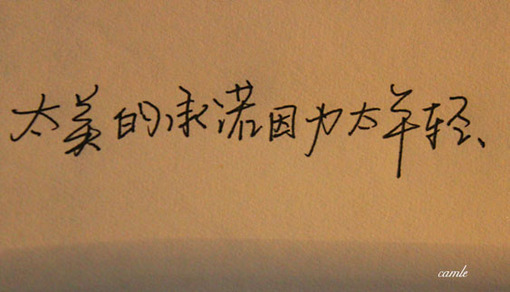 太美的承诺因为太年轻、
camle